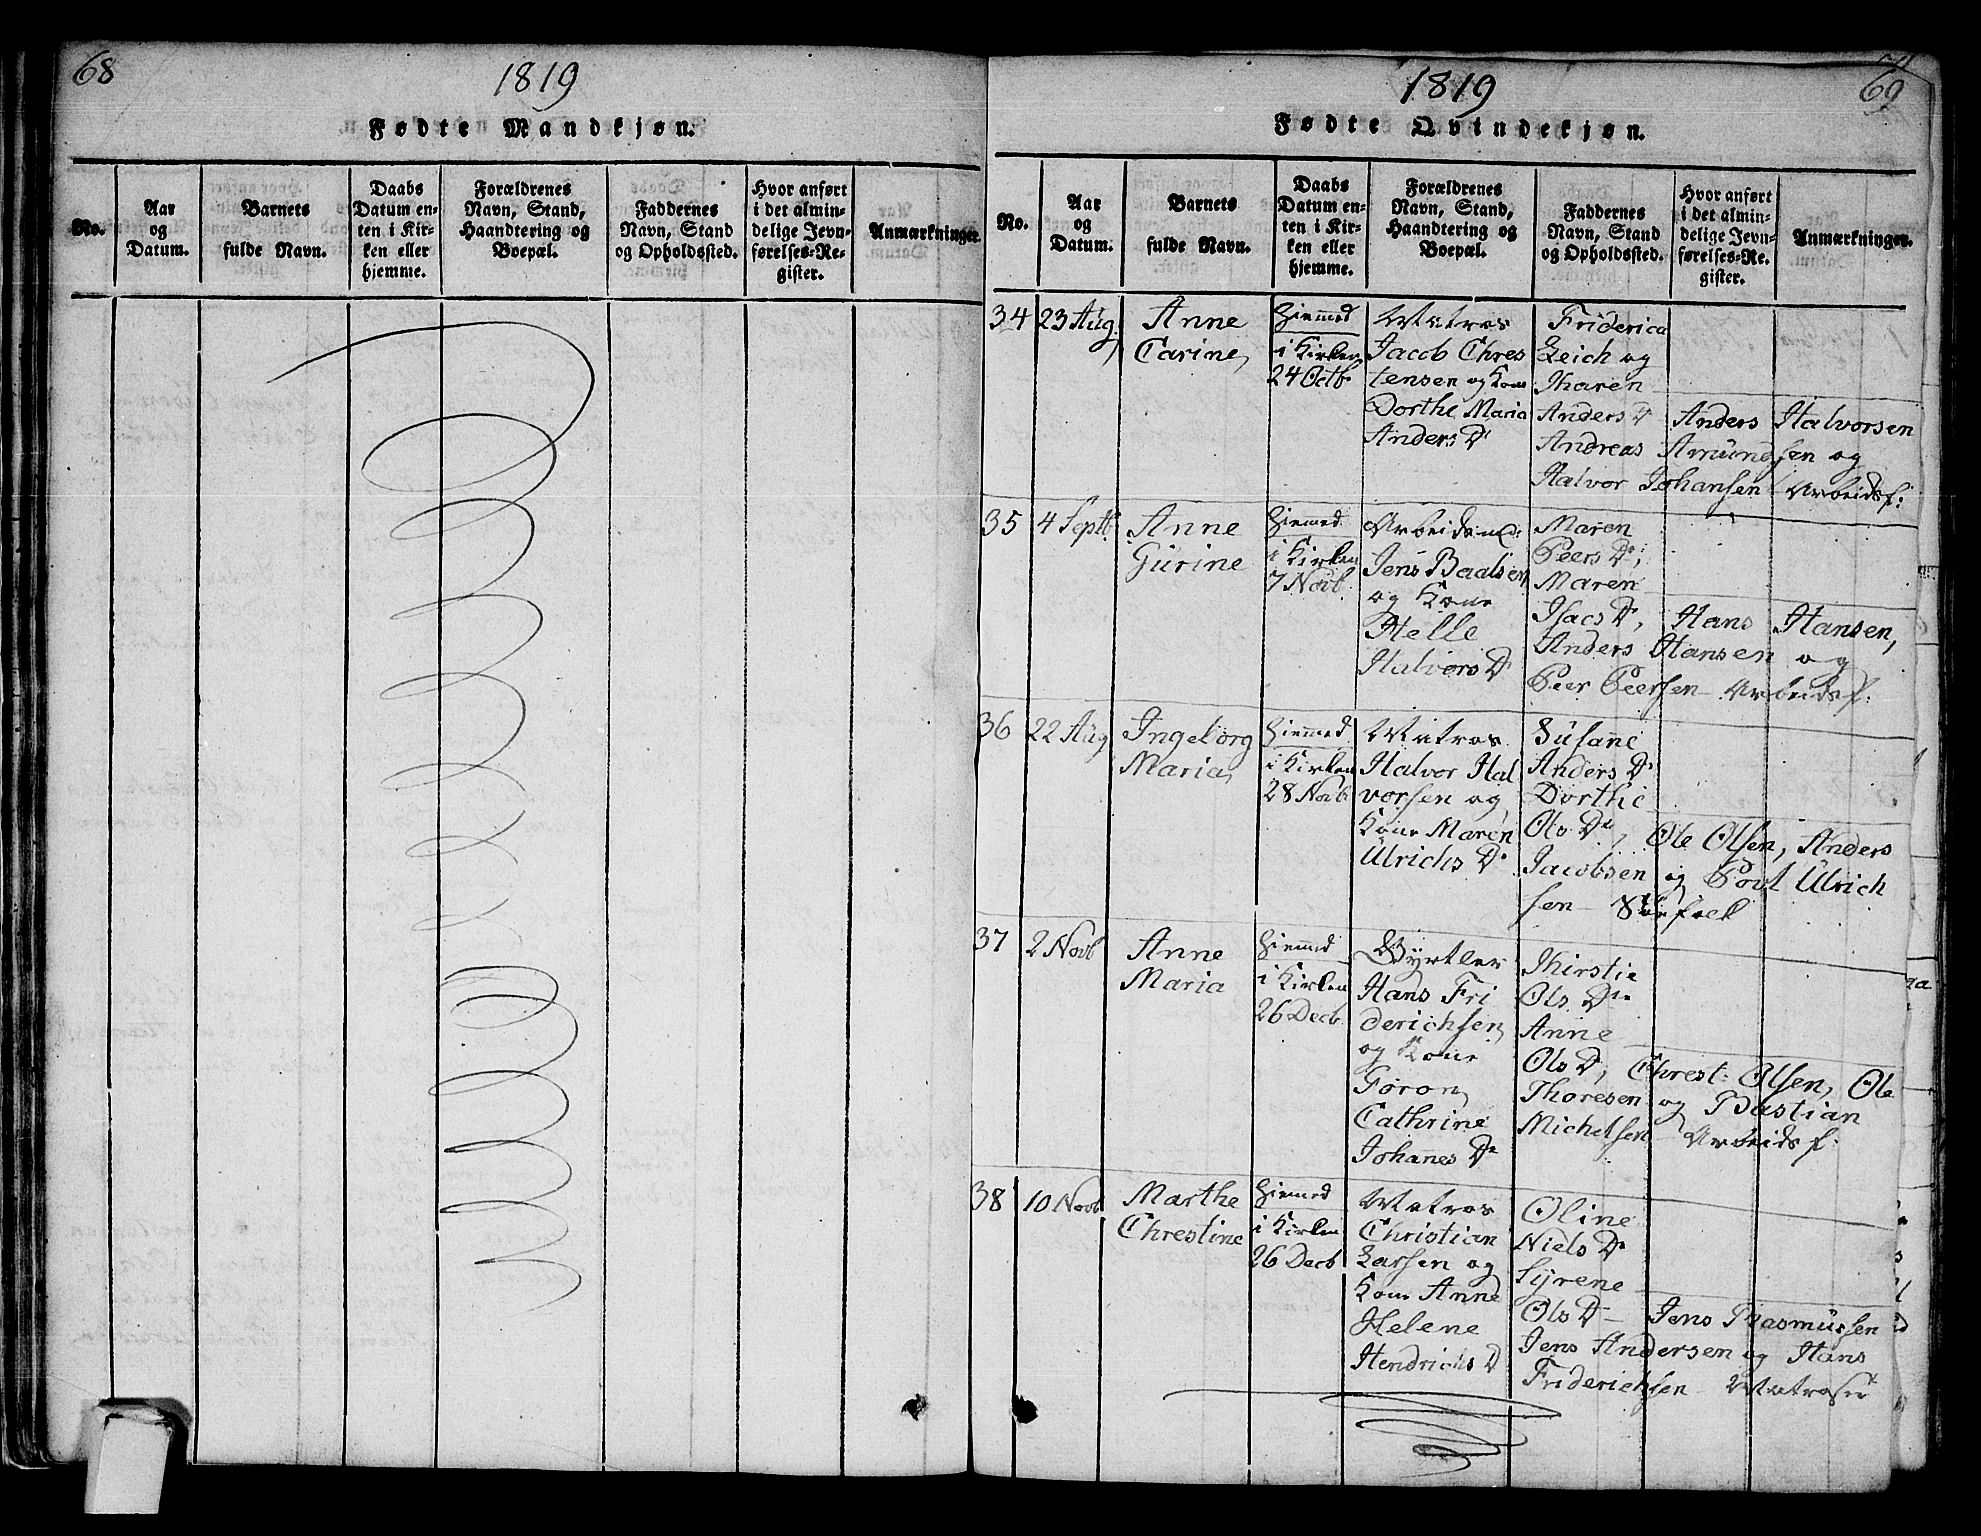 68
1819
Fødte Mandkjøn.
No.
Aar og Datum.
Barnets fulde Navn.
Daabs Datum enten i Kirken eller hjemme.
Forældrenes Navn, Stand, Haandtering og Boepæl.
Faddernes Navn, Stand og Opholdssted.
Hvor anført i det almindelige Jevnførelses-Register.
Anmærkninger.
69
1819
Fødte Qvindekjøn.
No.
Aar og Datum.
Barnets fulde Navn.
Daabs Datum enten i Kirken eller hjemme.
Forældrenes Navn, Stand, Haandtering og Boepæl.
Faddernes Navn, Stand og Opholdssted.
Hvor anført i det almindelige Jevnførelses-Register.
Anmærkninger.
34
23 Aug.
Anne
Carine,
Hiemmed
i Kirken
24 Octb
Matros
Jacob Chres
tensen og Kone
Dorthe Maria
Anders D.
Friderica
Zeich og
Maren
Anders D. Anders Halvorsen
Andreas Amundsen og
Halvor Johansen Arbeidsf:
35
4 Septb.
Anne
Gurine
Hiemmed
i Kirken
7 Novb
Arbeidsmd:
Jens Baalsen
og Kone
Helle
Halvors D.
Maren
Peers D.,
Maren
Isacs D, Hans Hansen,
Anders Hansen og
Peer Peersen Arbeidsf.
36
22 Aug
Ingeborg
Maria,
Hiemmed
i Kirken
28 Novb
Matros
Halvor Hal
vorsen og
Kone Maren
Ulrichs D.
Susane
Anders D.
Dorthe
Ols D., Ole Olsen, Anders
Jacobsen og Povl Ulrich
sen - Søefock
37
2 Novb
Anne
Maria
Hiemmed
i Kirken
26 Decb
Gyrtler
Hans Fri
derichsen,
og Kone
Foron,
Cathrine
Johannes D.
Kirstie
Ols D.
Anne
Ols D, Chrest: Olsen, Ole
Thoresen og Bastian
Michelsen Arbeidsf:
38
10 Novb
Marthe
Chrestine
Hiemmed
i Kirken
26 Decb
Matros
Christian
Larsen og
Kone Anne
Helene
Hendrichs D
Oline
Niels D.
Syrene
Ols D - Jens Rasmussen
Jens Andersen og Hans
Friderichsen Matroser